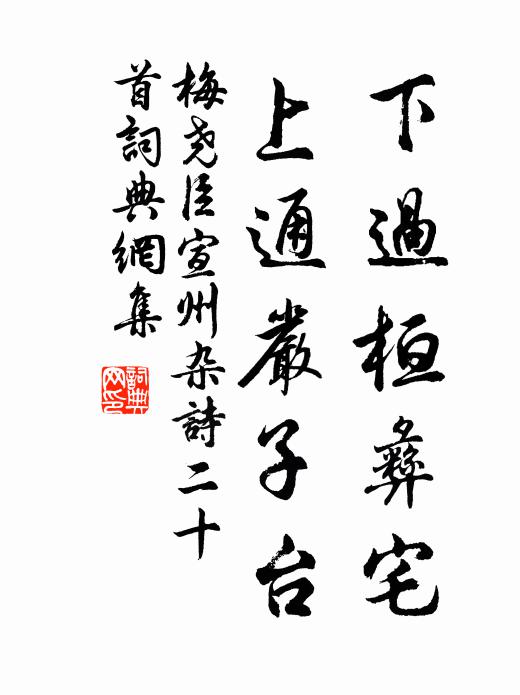 下過桓彝宅
上通嚴子台
梅尧臣宣州杂詩二十
首詞典網集
詞典
网印